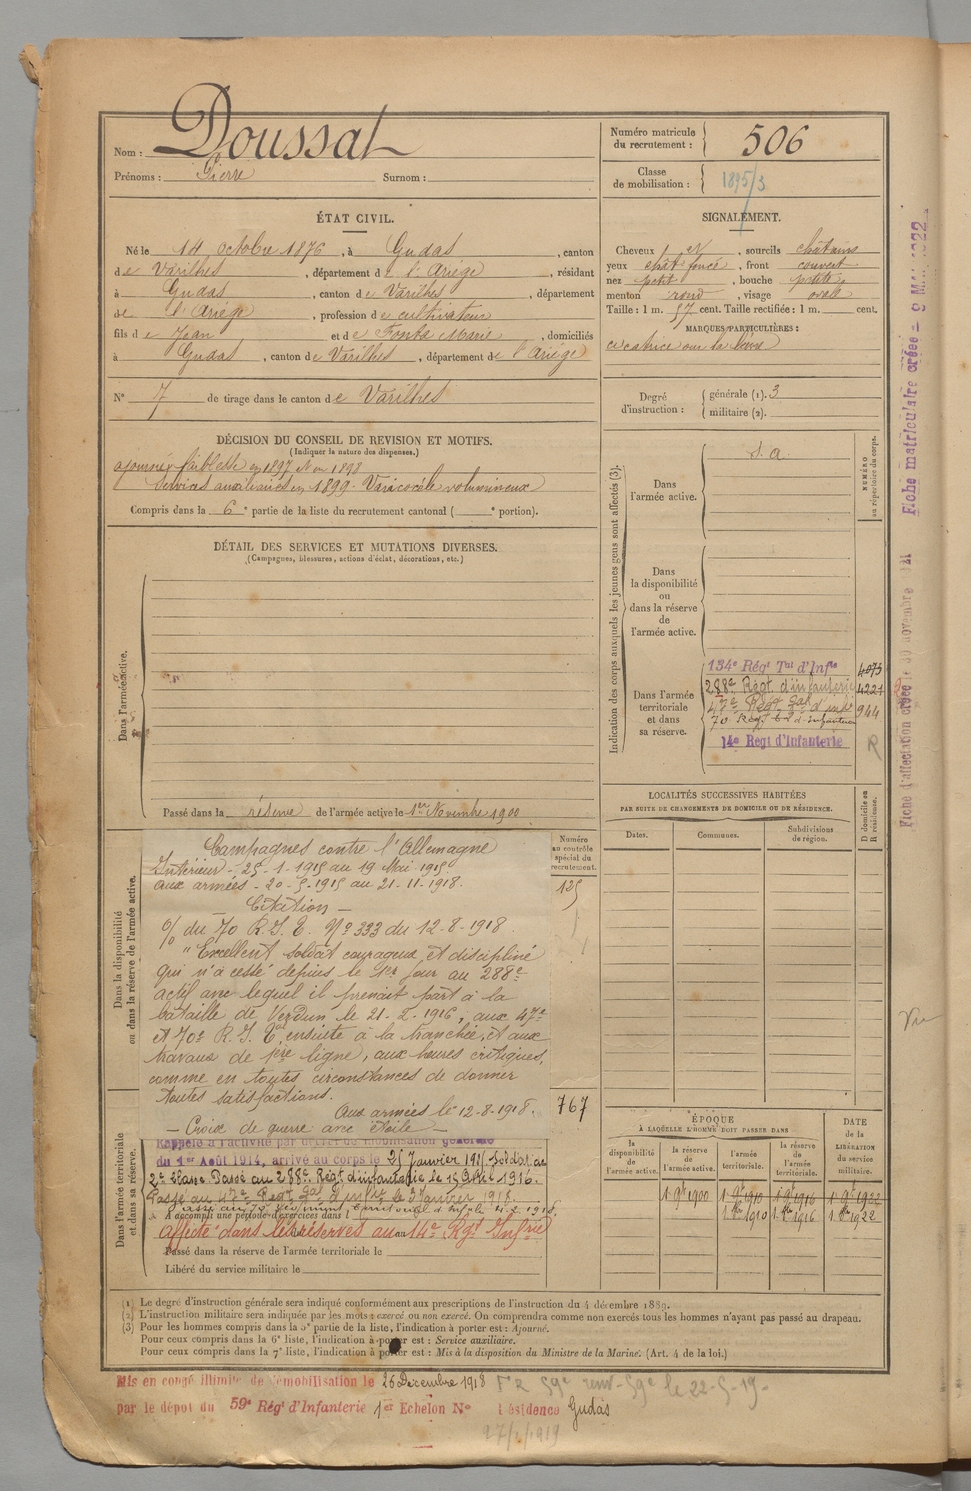 Nom : Doussat
Prénoms : Pierre Surnom :
Numéro matricule du recrutement : 506
Classe de mobilisation : 1895/3
ÉTAT CIVIL.
Né le 14 octobre 1876, à Gudas, canton
de Varilhes, département de l'Ariège, résidant
à Gudas, canton de Varilhes, département
de l'Ariège, profession de cultivateur
fils de Jean et de Fonta Marie, domiciliés
à Gudas, canton de Varilhes, département de l'Ariège
N° 7 de tirage dans le canton de Varilhes
SIGNALEMENT.
Cheveux , sourcils châtains
yeux chât foncé, front couvert
nez petit, bouche petite,
menton rond, visage ovale
Taille : 1 m. 57 cent. Taille rectifiée : 1 m. cent.
MARQUES PARTICULIÈRES :
cicatrice sur la
Degré d'instruction : générale (1). 3
militaire (2).
DÉCISION DU CONSEIL DE REVISION ET MOTIFS.
(Indiquer la nature des dispenses.)
ajourné faiblesse en 1897 et en 1898
Services auxiliaires en 1899 - Varicocèle volumineux
Compris dans la 6e partie de la liste du recrutement cantonal ( e portion).
DÉTAIL DES SERVICES ET MUTATIONS DIVERSES.
(Campagnes, blessures, actions d'éclat, décorations, etc.)
Dans l'armée active.
Passé dans la réserve de l'armée active le 1er Novembre 1900
Indication des corps auxquels les jeunes gens sont affectés (3).
NUMÉRO au répertoire du corps.
Dans l'armée active.
S. a.
Dans la disponibilité ou dans la réserve de l'armée active.
Dans l'armée territoriale et dans sa réserve.
134e Régt Tal d'Infie 4073
288e Régt d'infanterie 4221
47e Régt Tal d'infie 944
70 Régt d'Infanterie
14e Regt d'Infanterie
R
LOCALITÉS SUCCESSIVES HABITÉES
PAR SUITE DE CHANGEMENTS DE DOMICILE OU DE RÉSIDENCE.
Dates. Communes. Subdivisions de région.
D domicile ou R résidence.
Dans la disponibilité ou dans la réserve de l'armée active.
Numéro au contrôle spécial du recrutement.
125
767
Campagnes contre l'Allemagne
Intérieur - 25-1-1915 au 19 Mai 1915.
aux armées - 20-5-1915 au 21-11-1918.
Citation -
% du 70 R.I.T. N° 333 du 12-8-1918.
"Excellent soldat courageux et discipliné
qui n'a cessé depuis le 1er jour au 288e
actif avec lequel il prenait part à la
bataille de Verdun le 21-2-1916, aux 47e
et 70e R.I.T. ensuite à la tranchée, et aux
travaux de 1ère ligne, aux heures critiques,
comme en toutes circonstances de donner
toutes satisfactions.
Aux armées le 12-8-1918.
- Croix de guerre avec étoile -
Dans l'armée territoriale et dans sa réserve.
Rappelé à l'activité par décret de mobilisation générale
du 1er Août 1914, arrivé au corps le 25 Janvier 1915 Soldat de
2e classe. Passé au 288e Régt d'infanterie le 1916.
Passé au 47e Régt Tal d'infie le 3 Janvier 1918.
Passé au 70 Régiment Territorial d'Infie le 1918.
A accompli une période d'exercices dans l
Affecté dans les réserves au 14e Rgt Infrie
Passé dans la réserve de l'armée territoriale le
Libéré du service militaire le
ÉPOQUE
À LAQUELLE L'HOMME DOIT PASSER DANS
la disponibilité de l'armée active. la réserve de l'armée active. l'armée territoriale. la réserve de l'armée territoriale.
DATE de la LIBÉRATION du service militaire.
1 9bre 1900 1 9bre 1910 1 9bre 1916 1 9bre 1922
1910 1916 1922
(1) Le degré d'instruction générale sera indiqué conformément aux prescriptions de l'instruction du 4 décembre 1889.
(2) L'instruction militaire sera indiquée par les mots : exercé ou non exercé. On comprendra comme non exercés tous les hommes n'ayant pas passé au drapeau.
(3) Pour les hommes compris dans la 5e partie de la liste, l'indication à porter est : Ajourné.
Pour ceux compris dans la 6e liste, l'indication à porter est : Service auxiliaire.
Pour ceux compris dans la 7e liste, l'indication à porter est : Mis à la disposition du Ministre de la Marine. (Art. 4 de la loi.)
Mis en congé illimité de démobilisation le 26 Décembre 1918
par le dépôt du 59e Régt d'Infanterie 1er Echelon N° Résidence Gudas
59e le 22-5-19
Fiche matriculaire créée
Fiche d'affectation créée le 30 novembre
Vu